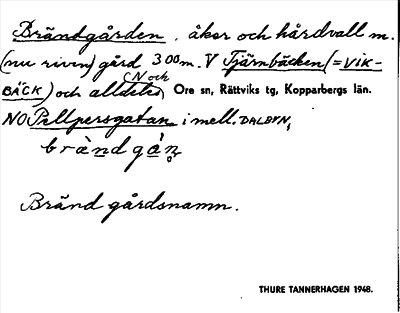 Brändgården, åker och hårdvall m.
(nu riven) gård 300m. V Tjärnbäcken (=VIK-
BÄCK) och alldeles (N och Ore sn, Rättviks tg, Kopparbergs län.
NO Pellpersgatan i mell. DALBYN,
brä̀ndgàn̥
Bränd gårdsnamn.
THURE TANNERHAGEN 1948.